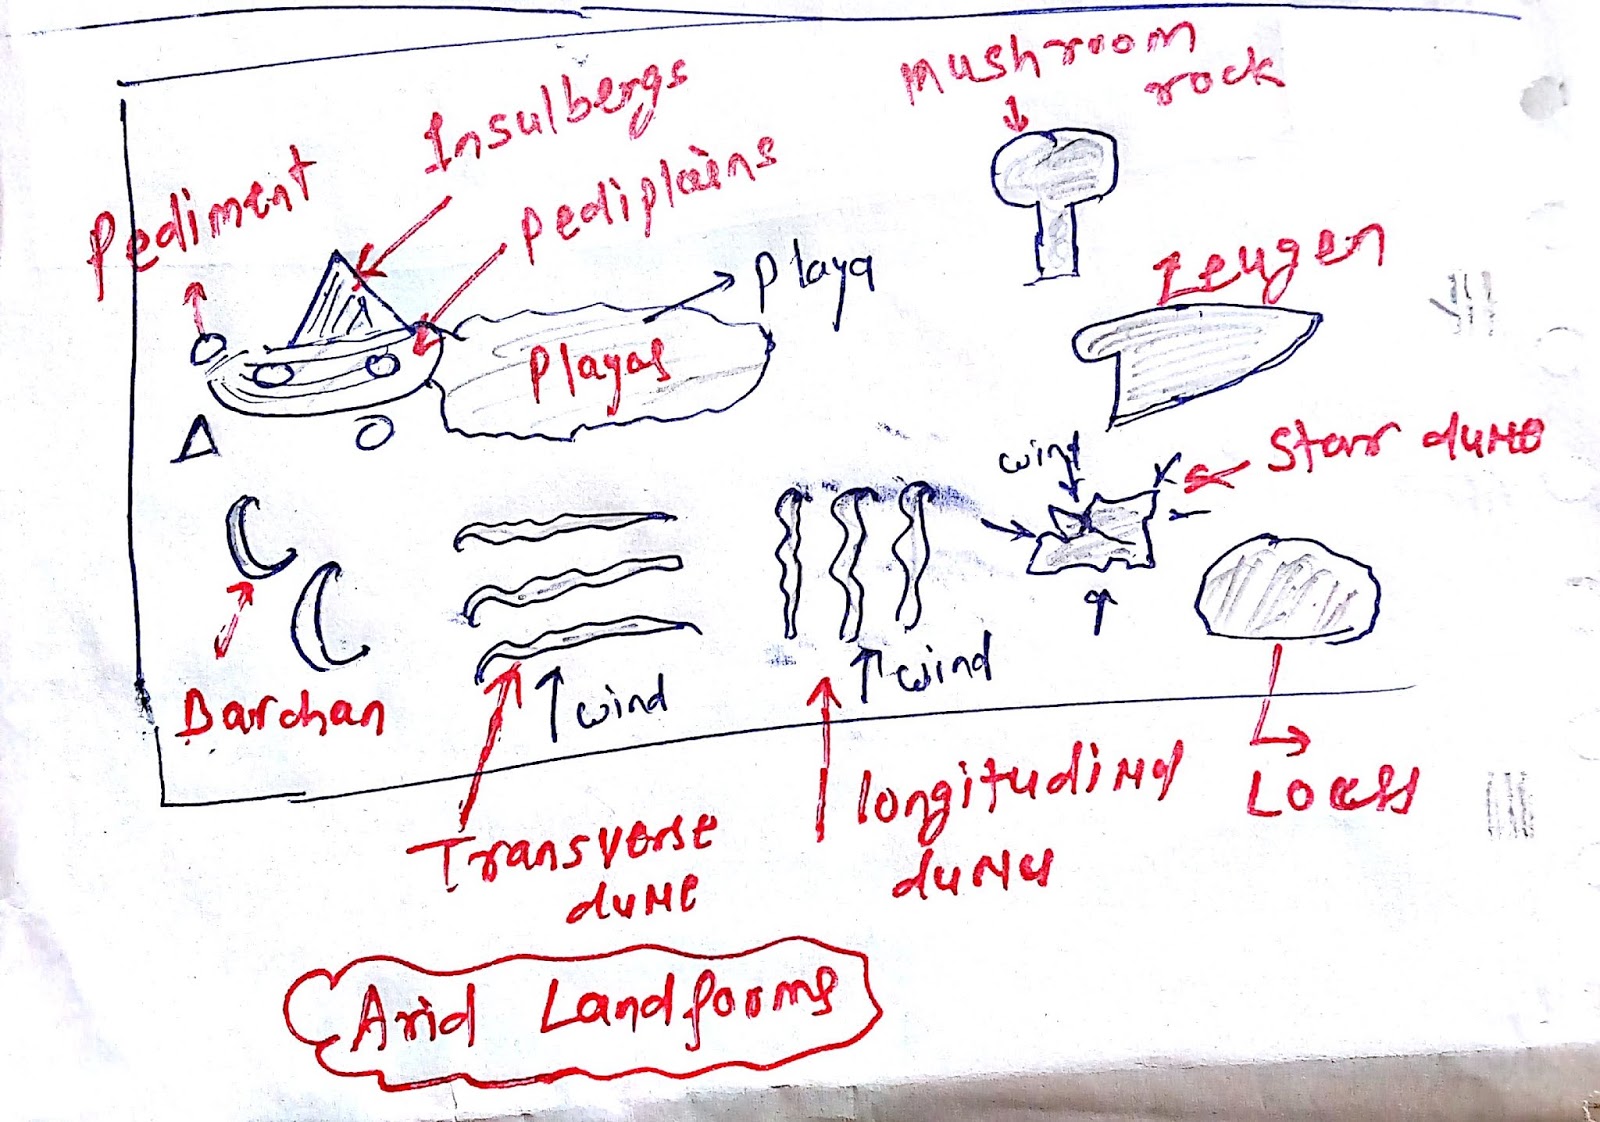 Mushroom
rock
Insulbergs
Pediplains
Pediment
Zeugen
Playa
Playas
Star dune
wind
wind
wind
Barchan
Transverse
dune
longitudinal
dune
Loess
Arid Landforms